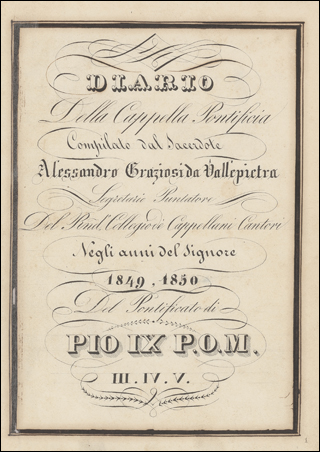 DIARIO
Della Cappella Pontificia
Compilato dal Sacerdote
Alessandro Graziosi da Vallepietra
Segretario Puntatore
Del Rmd. Collegio di Cappellani Cantori
Negli anni del Signore
1849, 1850
Del Pontificato di
PIO IX P.O.M.
III. IV. V.